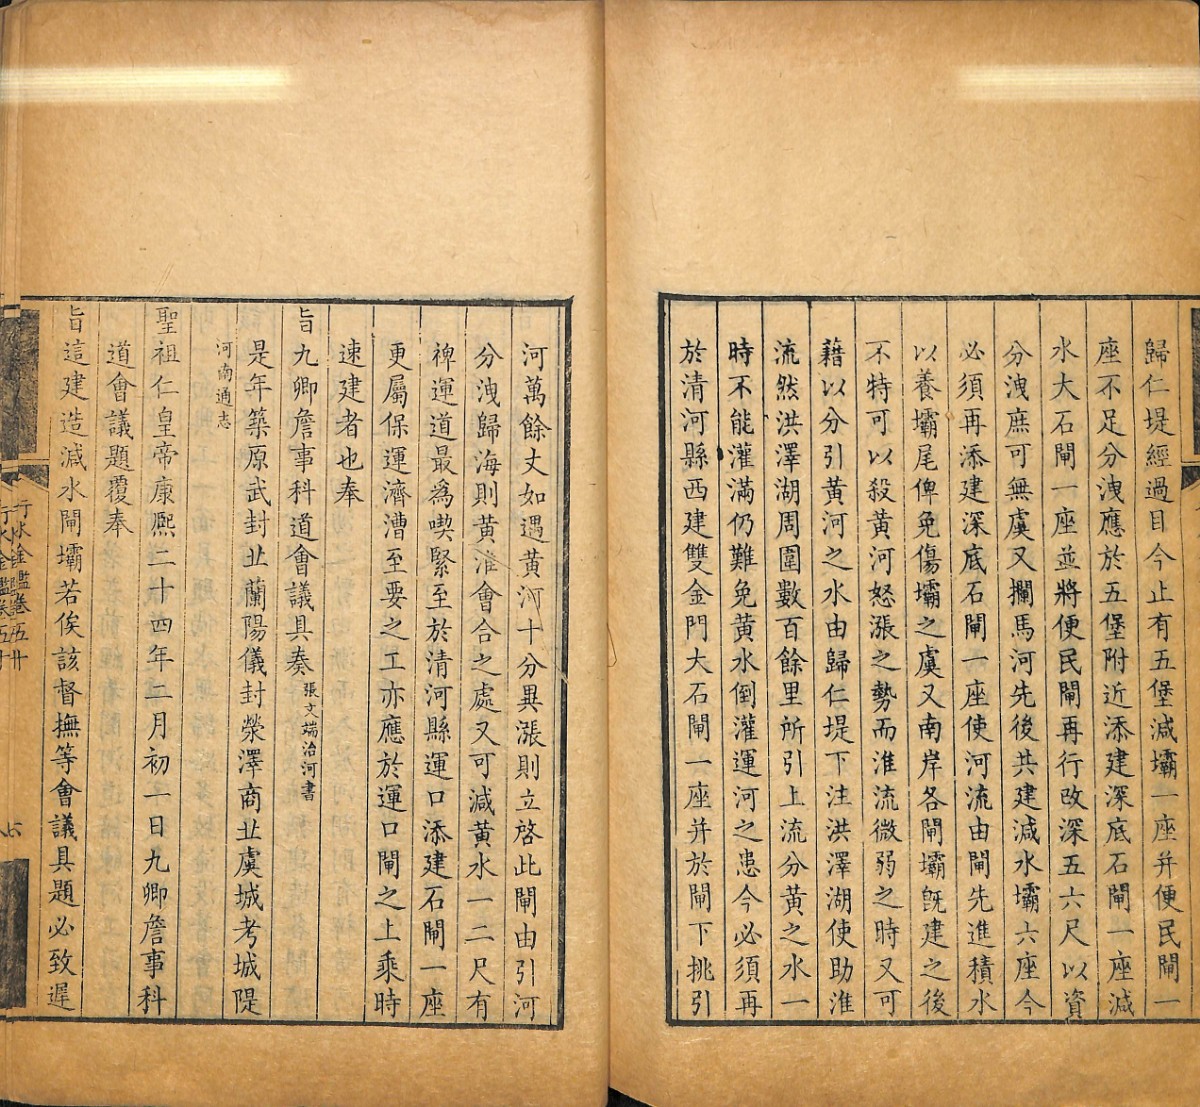 歸仁堤經過目今止有五堡減壩一座并便民閘一
座不足分洩應於五堡附近添建深底石閘一座減
水大石閘一座並將便民閘再行改深五六尺以資
分洩庶可無虞又攔馬河先後共建減水壩六座今
必須再添建深底石閘一座使河流由閘先進積水
以養壩尾俾免傷壩之虞又南岸各閘壩旣建之後
不特可以殺黃河怒漲之勢而淮流微弱之時又可
藉以分引黃河之水由歸仁堤下注洪澤湖使助淮
流然洪澤湖周圍數百餘里所引上流分黃之水一
時不能灌滿仍難免黃水倒灌運河之患今必須再
於清河縣西建雙金門大石閘一座并於閘下挑引
河萬餘丈如遇黃河十分異漲則立啓此閘由引河
分洩歸海則黃淮會合之處又可減黃水一二尺有
裨運道最爲喫緊至於清河縣運口添建石閘一座
更屬保運濟漕至要之工亦應於運口閘之上乘時
速建者也奉
旨九卿詹事科道會議具奏張文端治河書
是年築原武封丘蘭陽儀封滎澤商丘虞城考城隄
河南通志
聖祖仁皇帝康熙二十四年二月初一日九卿詹事科
道會議題覆奉
旨這建造減水閘壩若俟該督撫等會議具題必致遲
行水金鑑卷五十